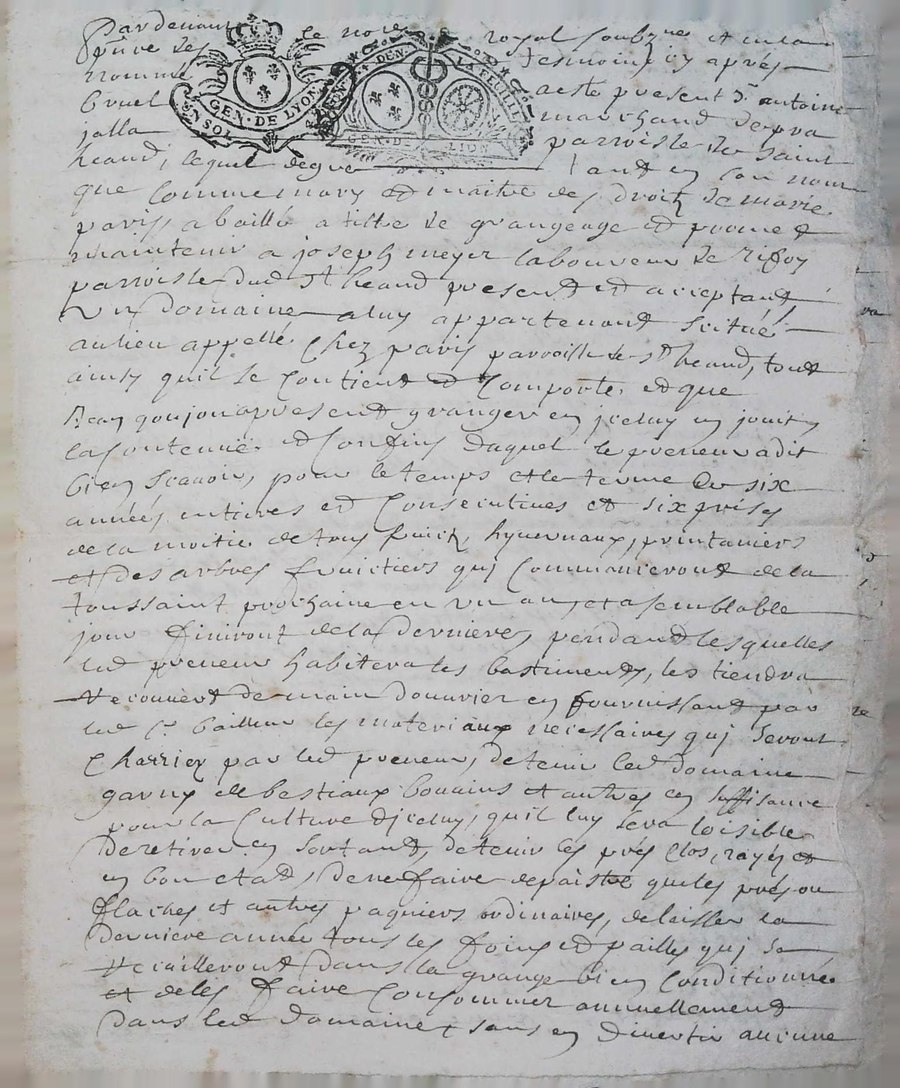 Pardevant le no.re royal soubzne et en la
pnce des tesmoins cy apres
nommé a esté present sr antoine
bruel marchand de
jalla parroisse de saint
heand, lequel de gre tant en son nom
que comme mary et maitre des droitz de marie
paris, a baillé a tiltre de grangeage et promet
maintenir a joseph meyer laboureur de
parroisse dud st heand present et acceptant
un domaine a luy appartenant scitué
au lieu appellé chez paris parroisse de st heand, tout
ainsy quil se contient et comporte, et que
jean goujon a present granger en jceluy en jouit
la contenue et confins duquel le preneur a dit
bien scavoir, pour le temps et le terme de six
années entieres et consecutives et six prises
de la moitié de tous fruictz, hyvernaux, printaniers
et des arbres fruictiers qui commanceront de la
toussaint prochaine en un an, et a semblable
jour finiront de la derniere, pendant lesquelles
led preneur habitera les bastiments, les tiendra
recouvert de main douvrier en fournissant par
led sr bailleur les materiaux necessaires qui seront
charriez par led preneur, de tenir led domaine
garny de bestiaux bouvins et autres en suffisance
pour la culture djceluy, quil luy sera loisible
de retirer en sortant, de tenir les prés clos, rayés et
en bon etat, de ne faire depaistre que les prés ou
flaches et autres paquiers ordinaires, de laisser la
derniere année tous les foins et pailles qui se
recuilleront dans la grange bien conditionnée
et de les faire consommer annuellement
dans led domaine sans en divertir aucune
GEN·DE LYON
UN SOL
GEN·DE·LION
LA FEUILLE